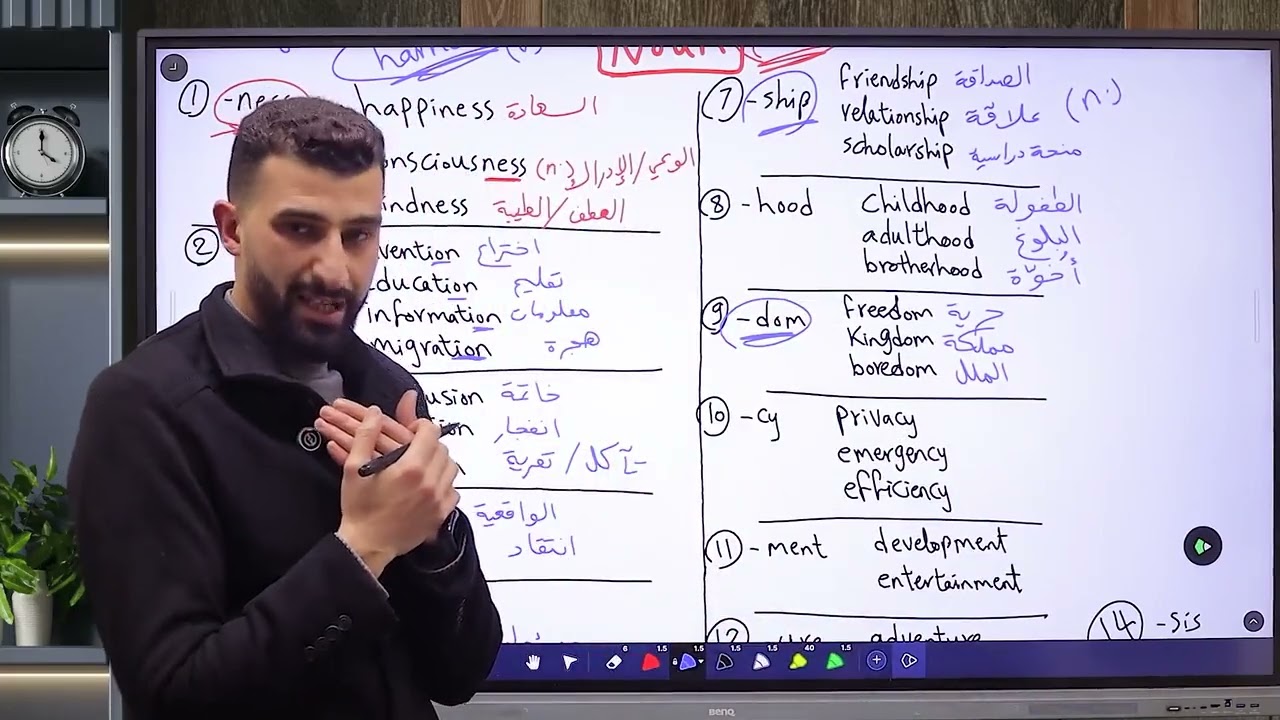 Noun
① -ness happiness السعادة
onsciousness (n.) الوعي/الإدراك
indness العطف/الطيبة
②
vention اختراع
ducation تعليم
information معلومات
migration هجرة
usion خاتمة
ion انفجار
n تآكل / تعرية
الواقعية
انتقاد
⑦ -ship friendship الصداقة
relationship علاقة (n.)
scholarship منحة دراسية
⑧ -hood childhood الطفولة
adulthood البلوغ
brotherhood أخوّة
⑨ -dom freedom حرية
Kingdom مملكة
boredom الملل
⑩ -cy privacy
emergency
efficiency
⑪ -ment development
entertainment
12 -ure adventure
⑭ -sis
6 1.5 1.5 1.5 1.5 40 1.5
BenQ